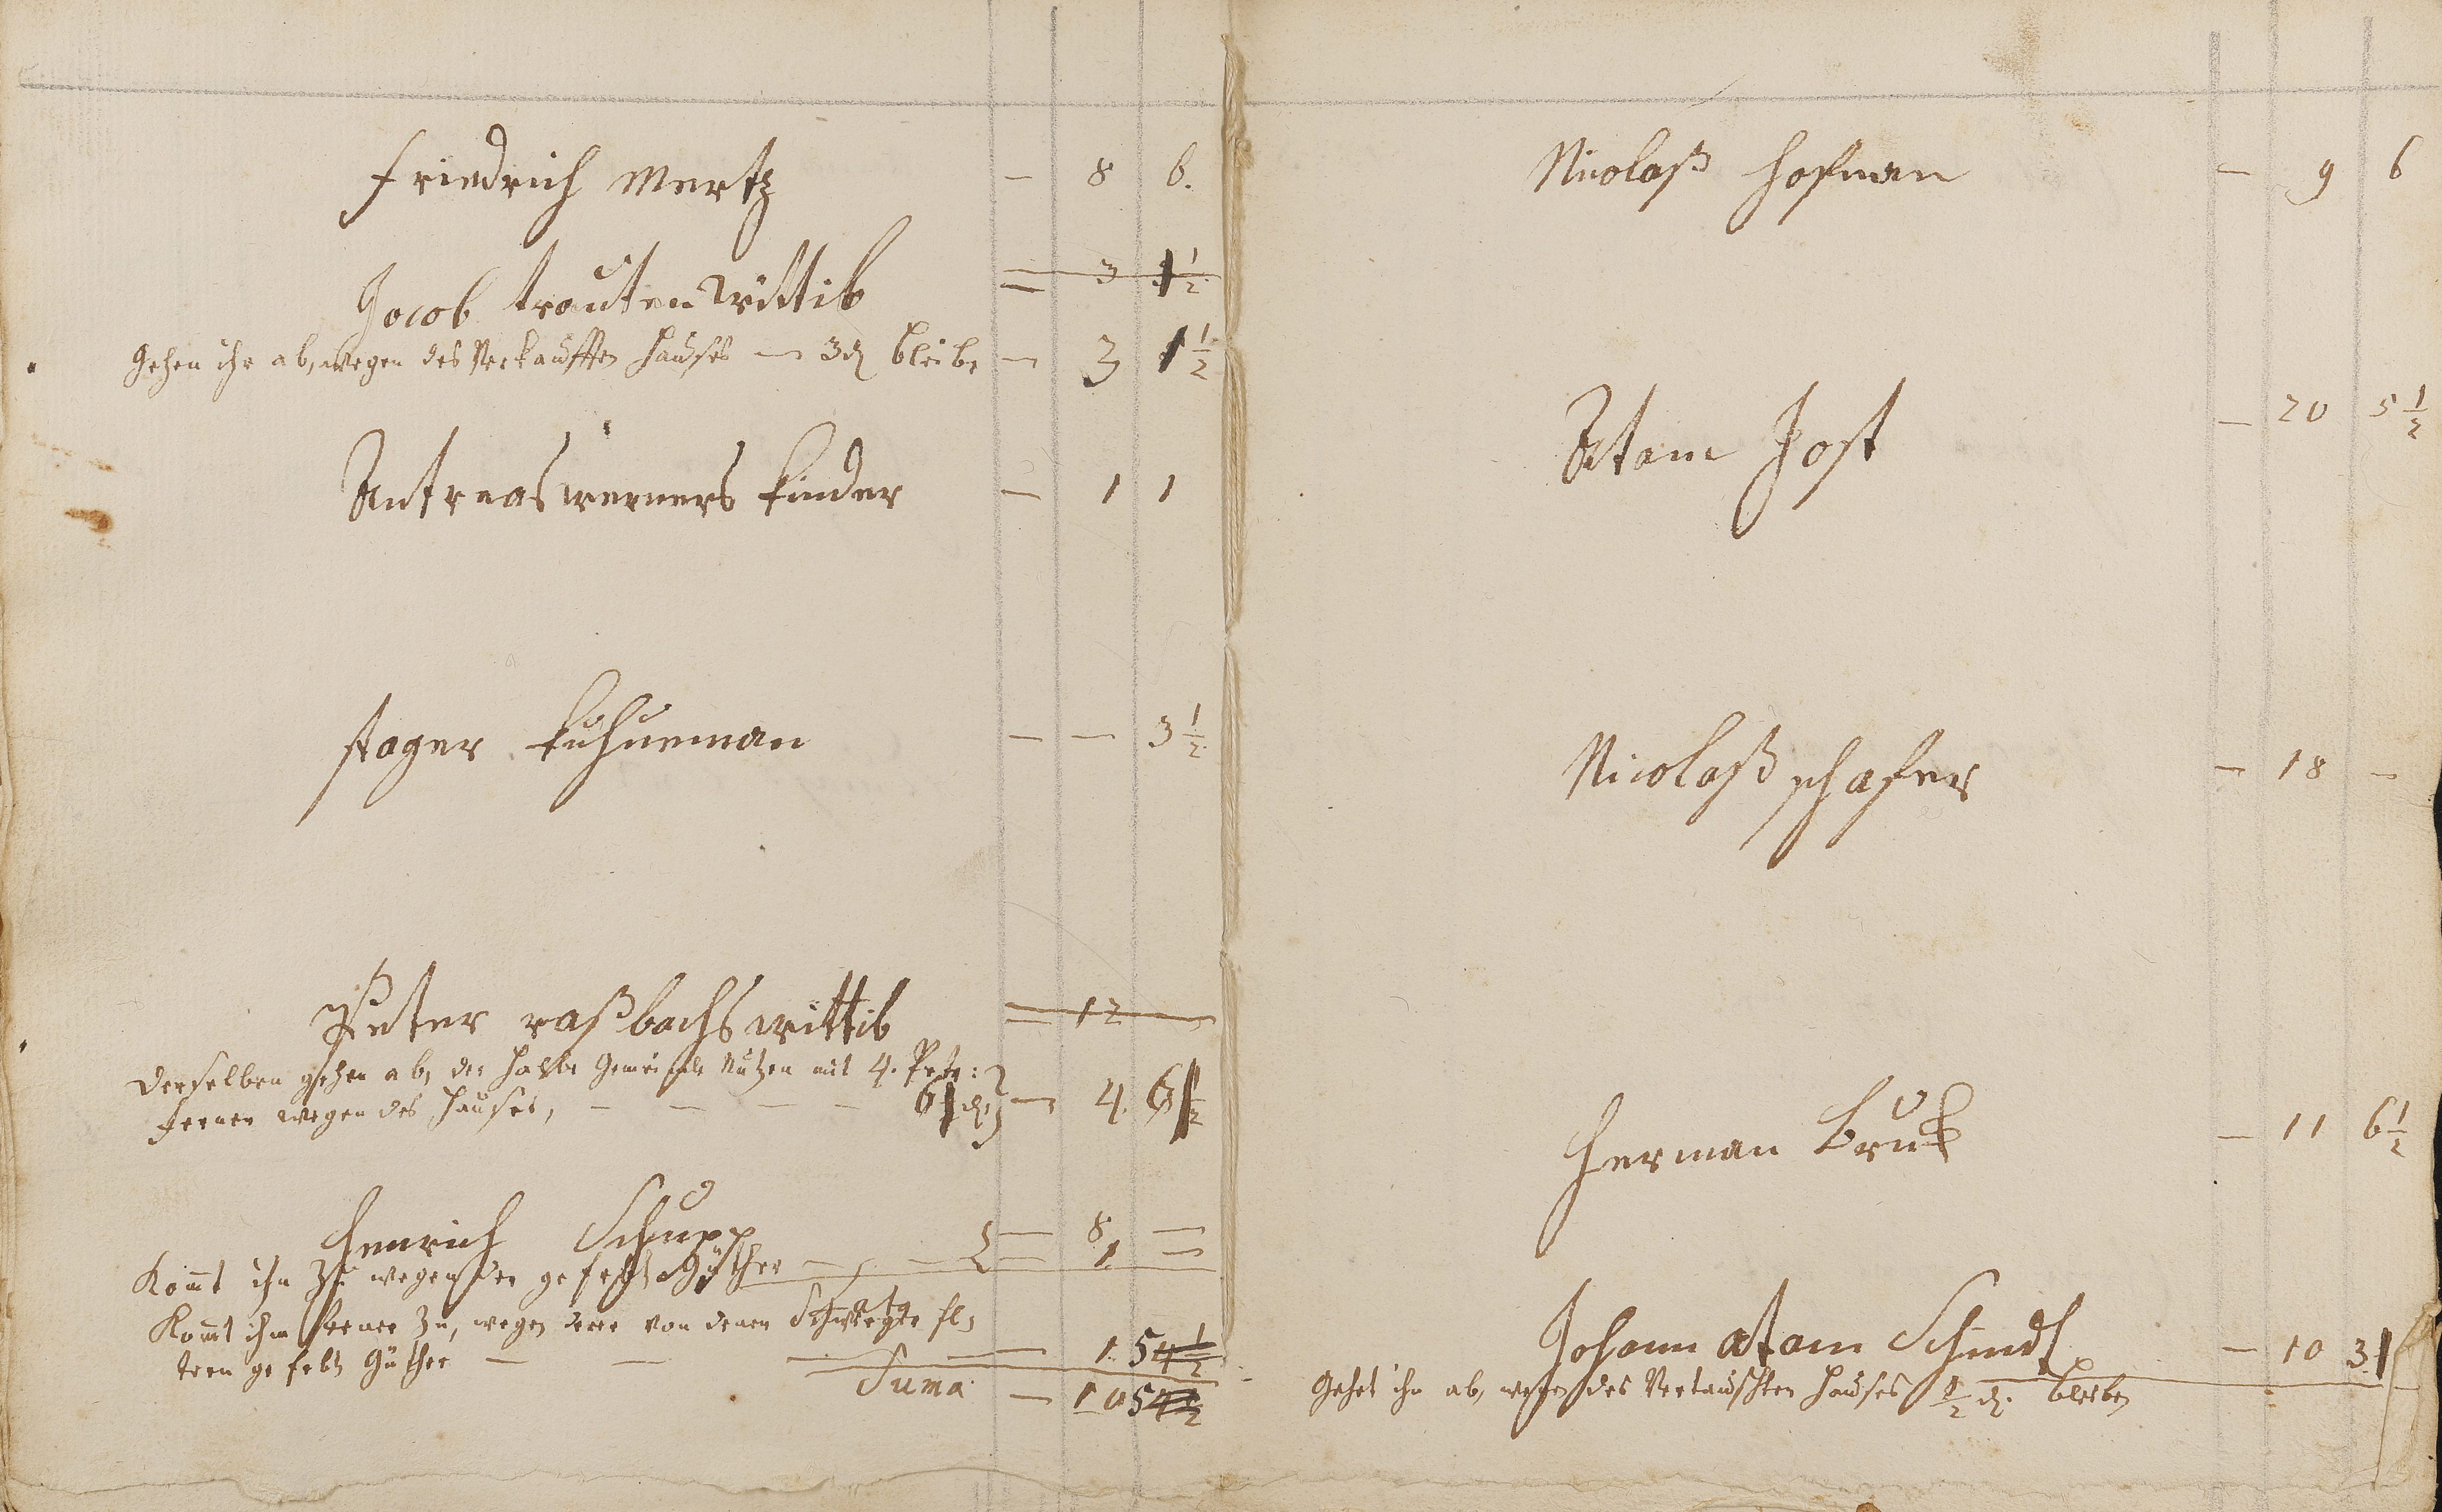 Friedrich Mertz — 8 6.
Jacob trauten Wittib — 3 1 1/2
Gehen ihr ab, wegen des Verkaufften Hauses — 3 d bleibe — 3 1 1/2
Antreas werners kinder — 1 1
kuhneman — — 3 1/2
Peter raßbachs wittib — 12 —
Derselben gehen ab, der halbe Gemeinde Nutzen mit 4.
Ferner wegen des Hauses, — — — — 6 d. — 4. 1/2
Henrich Schupp — 8 —
Kommt ihm Zu wegen der Güther — — 1 —
Kommt ihm ferner Zu, wegen derer von denen
Güther — — — — 1. 5
Suma — 10 5
Nicolaß Hofman — 9 6
Atam Jost — 20 5 1/2
Nicolaß schafer — 18 —
Herman Bruk — 11 6 1/2
Johann Atam Schmidt — 10 3
Gehet ihm ab, wegen des Vertauschten Hauses 1/2 d. bleiben